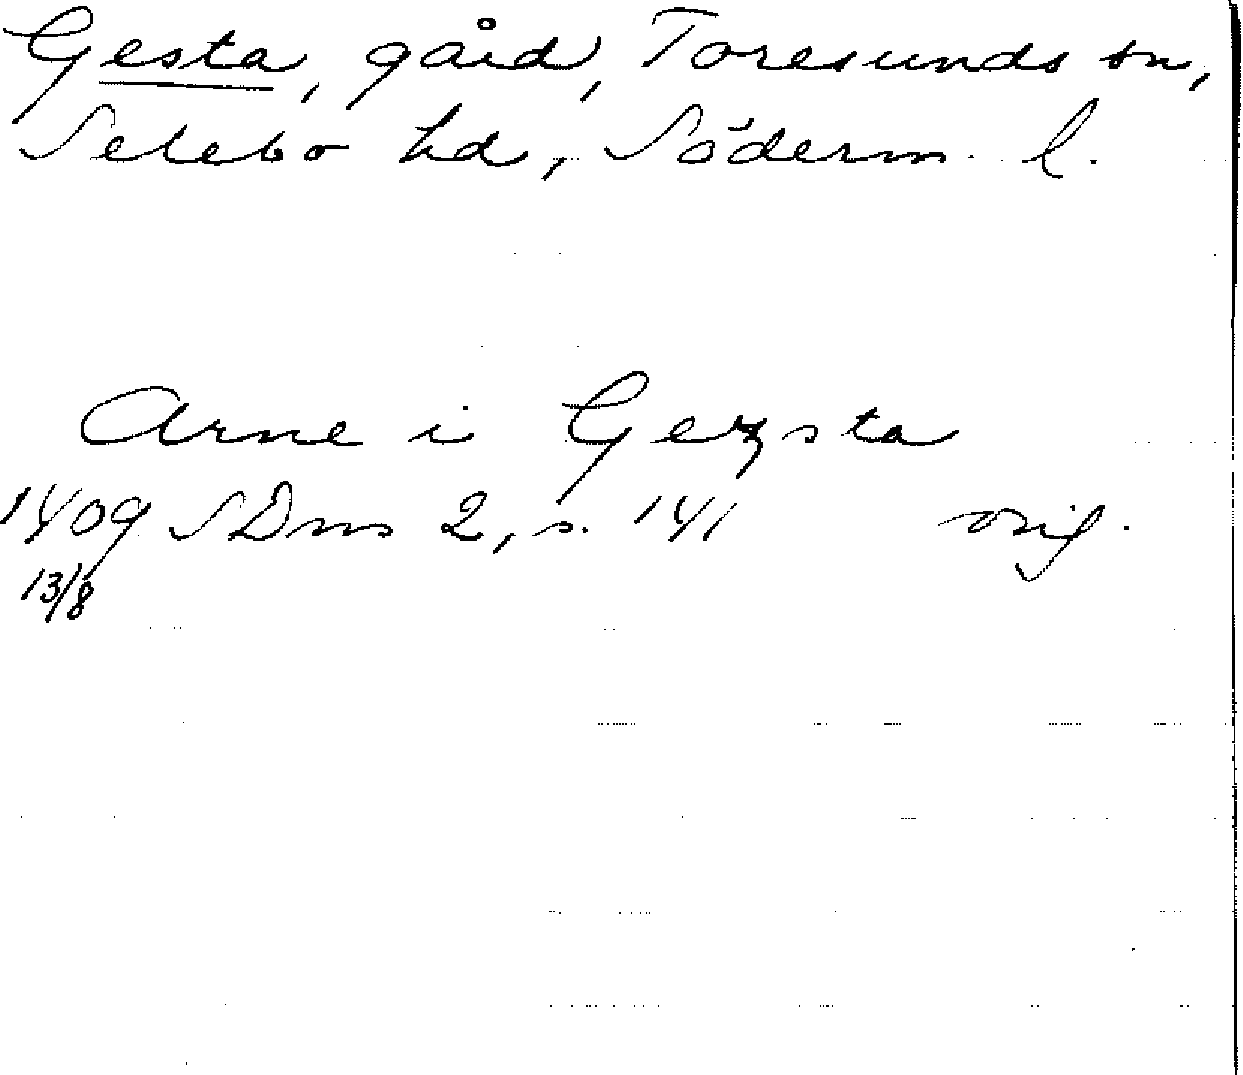 Gesta, gård, Toresunds sn,
Selebo hd, Söderm. l.
Arne i Gezsta
1409 SDns 2, s. 141 orig.
13/8